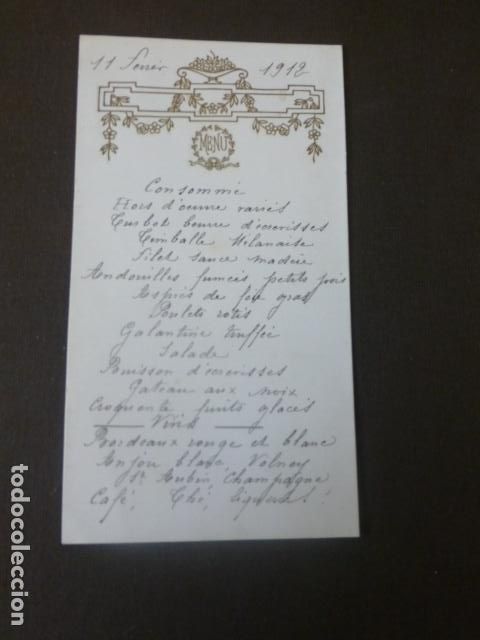 11 Fevrier 1912
MENU
Consommé
Hors d'oeuvre variés
Turbot beurre d'écrevisses
Timballe Milanaise
Filet sauce madère
Andouilles fumées petits pois
Aspics de foie gras
Poulets rotis
Galantine truffée
Salade
Buisson d'écrevisses
Gateau aux noix
Croquante, fruits glacés
Vins
Bordeaux rouge et blanc
Anjou blanc, Volnay
St Aubin, Champagne
Café, Thé, Liqueurs.
todocoleccion